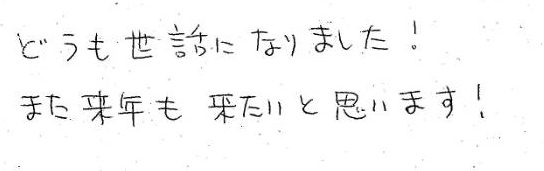 どうも世話になりました！
また来年も来たいと思います！